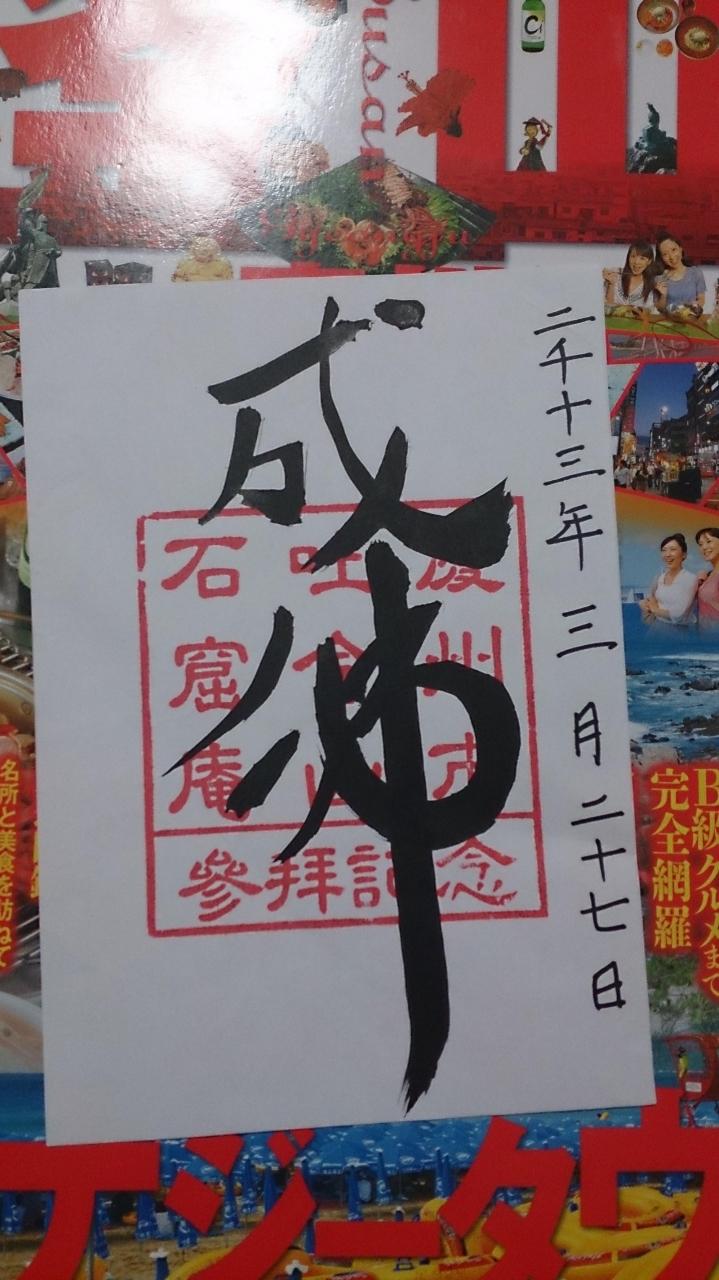 Busan
二千十三年三月二十七日
成佛
慶州市
吐含山
石窟庵
參拜記念
B級グルメまで
完全網羅
名所と美食を訪ねて
デジータウ